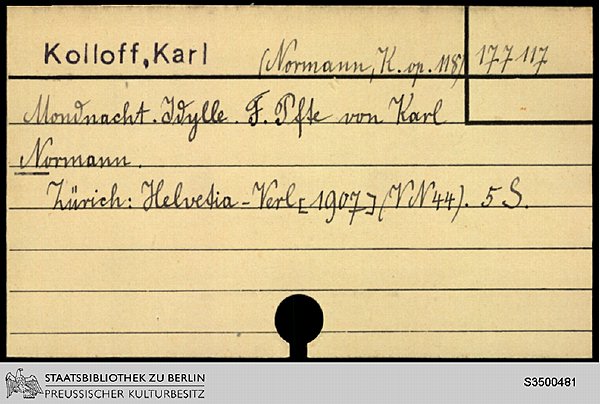 Kolloff, Karl (Normann, K. op. 118) 177117
Mondnacht. Idylle. F. Pfte von Karl
Normann.
Zürich: Helvetia-Verl [1907] (VN 44). 5 S.
STAATSBIBLIOTHEK ZU BERLIN
PREUSSISCHER KULTURBESITZ
S3500481